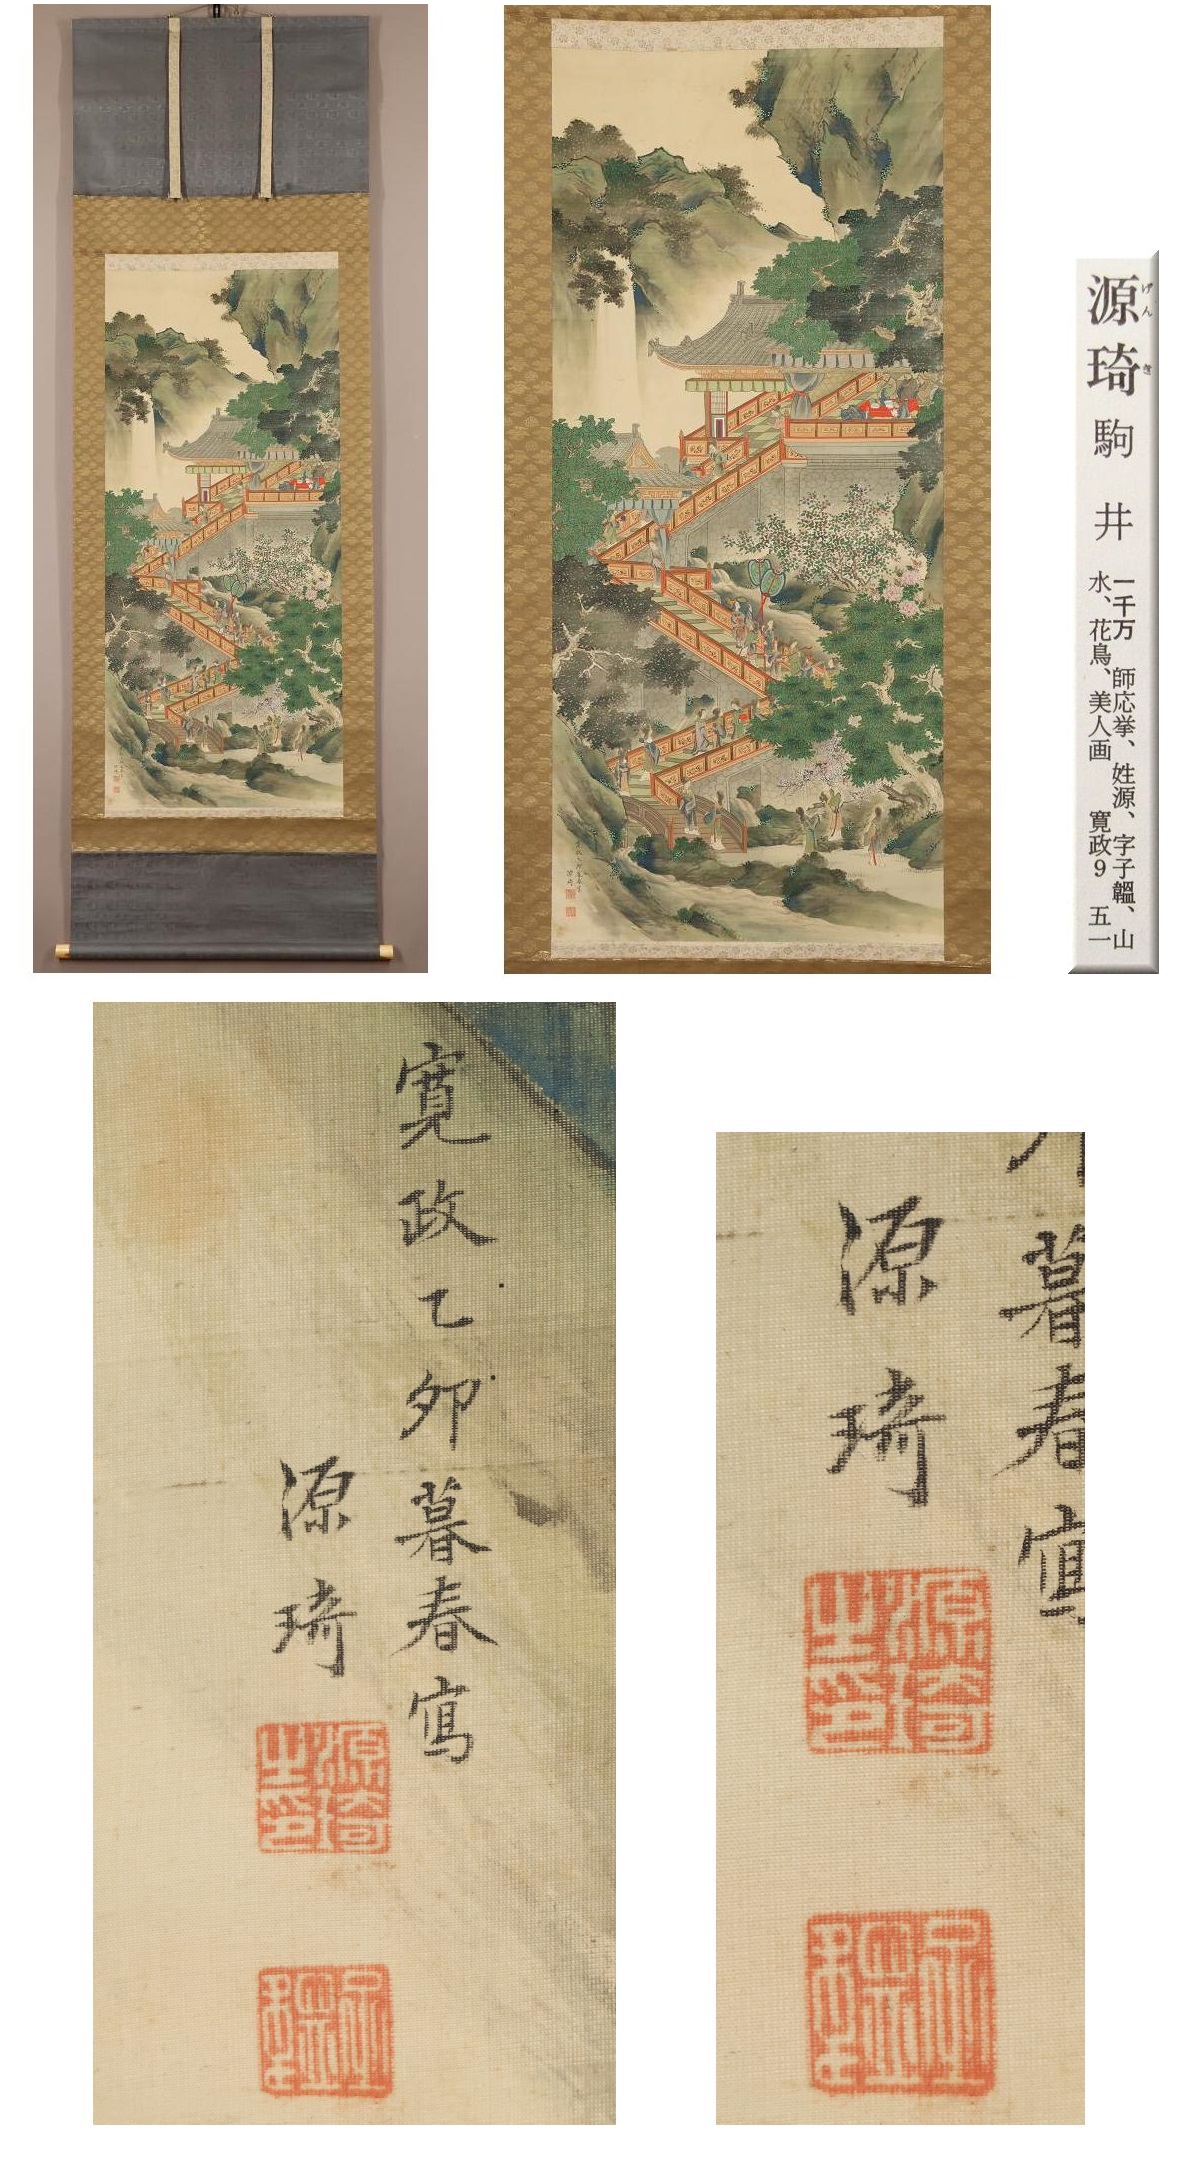 源琦
げんき
駒井
一千万 師応挙、姓源、字子韞、山
水、花鳥、美人画 寛政9 五一
寛政乙卯暮春寫
源琦
源琦之印
暮春寫
源琦
源琦之印